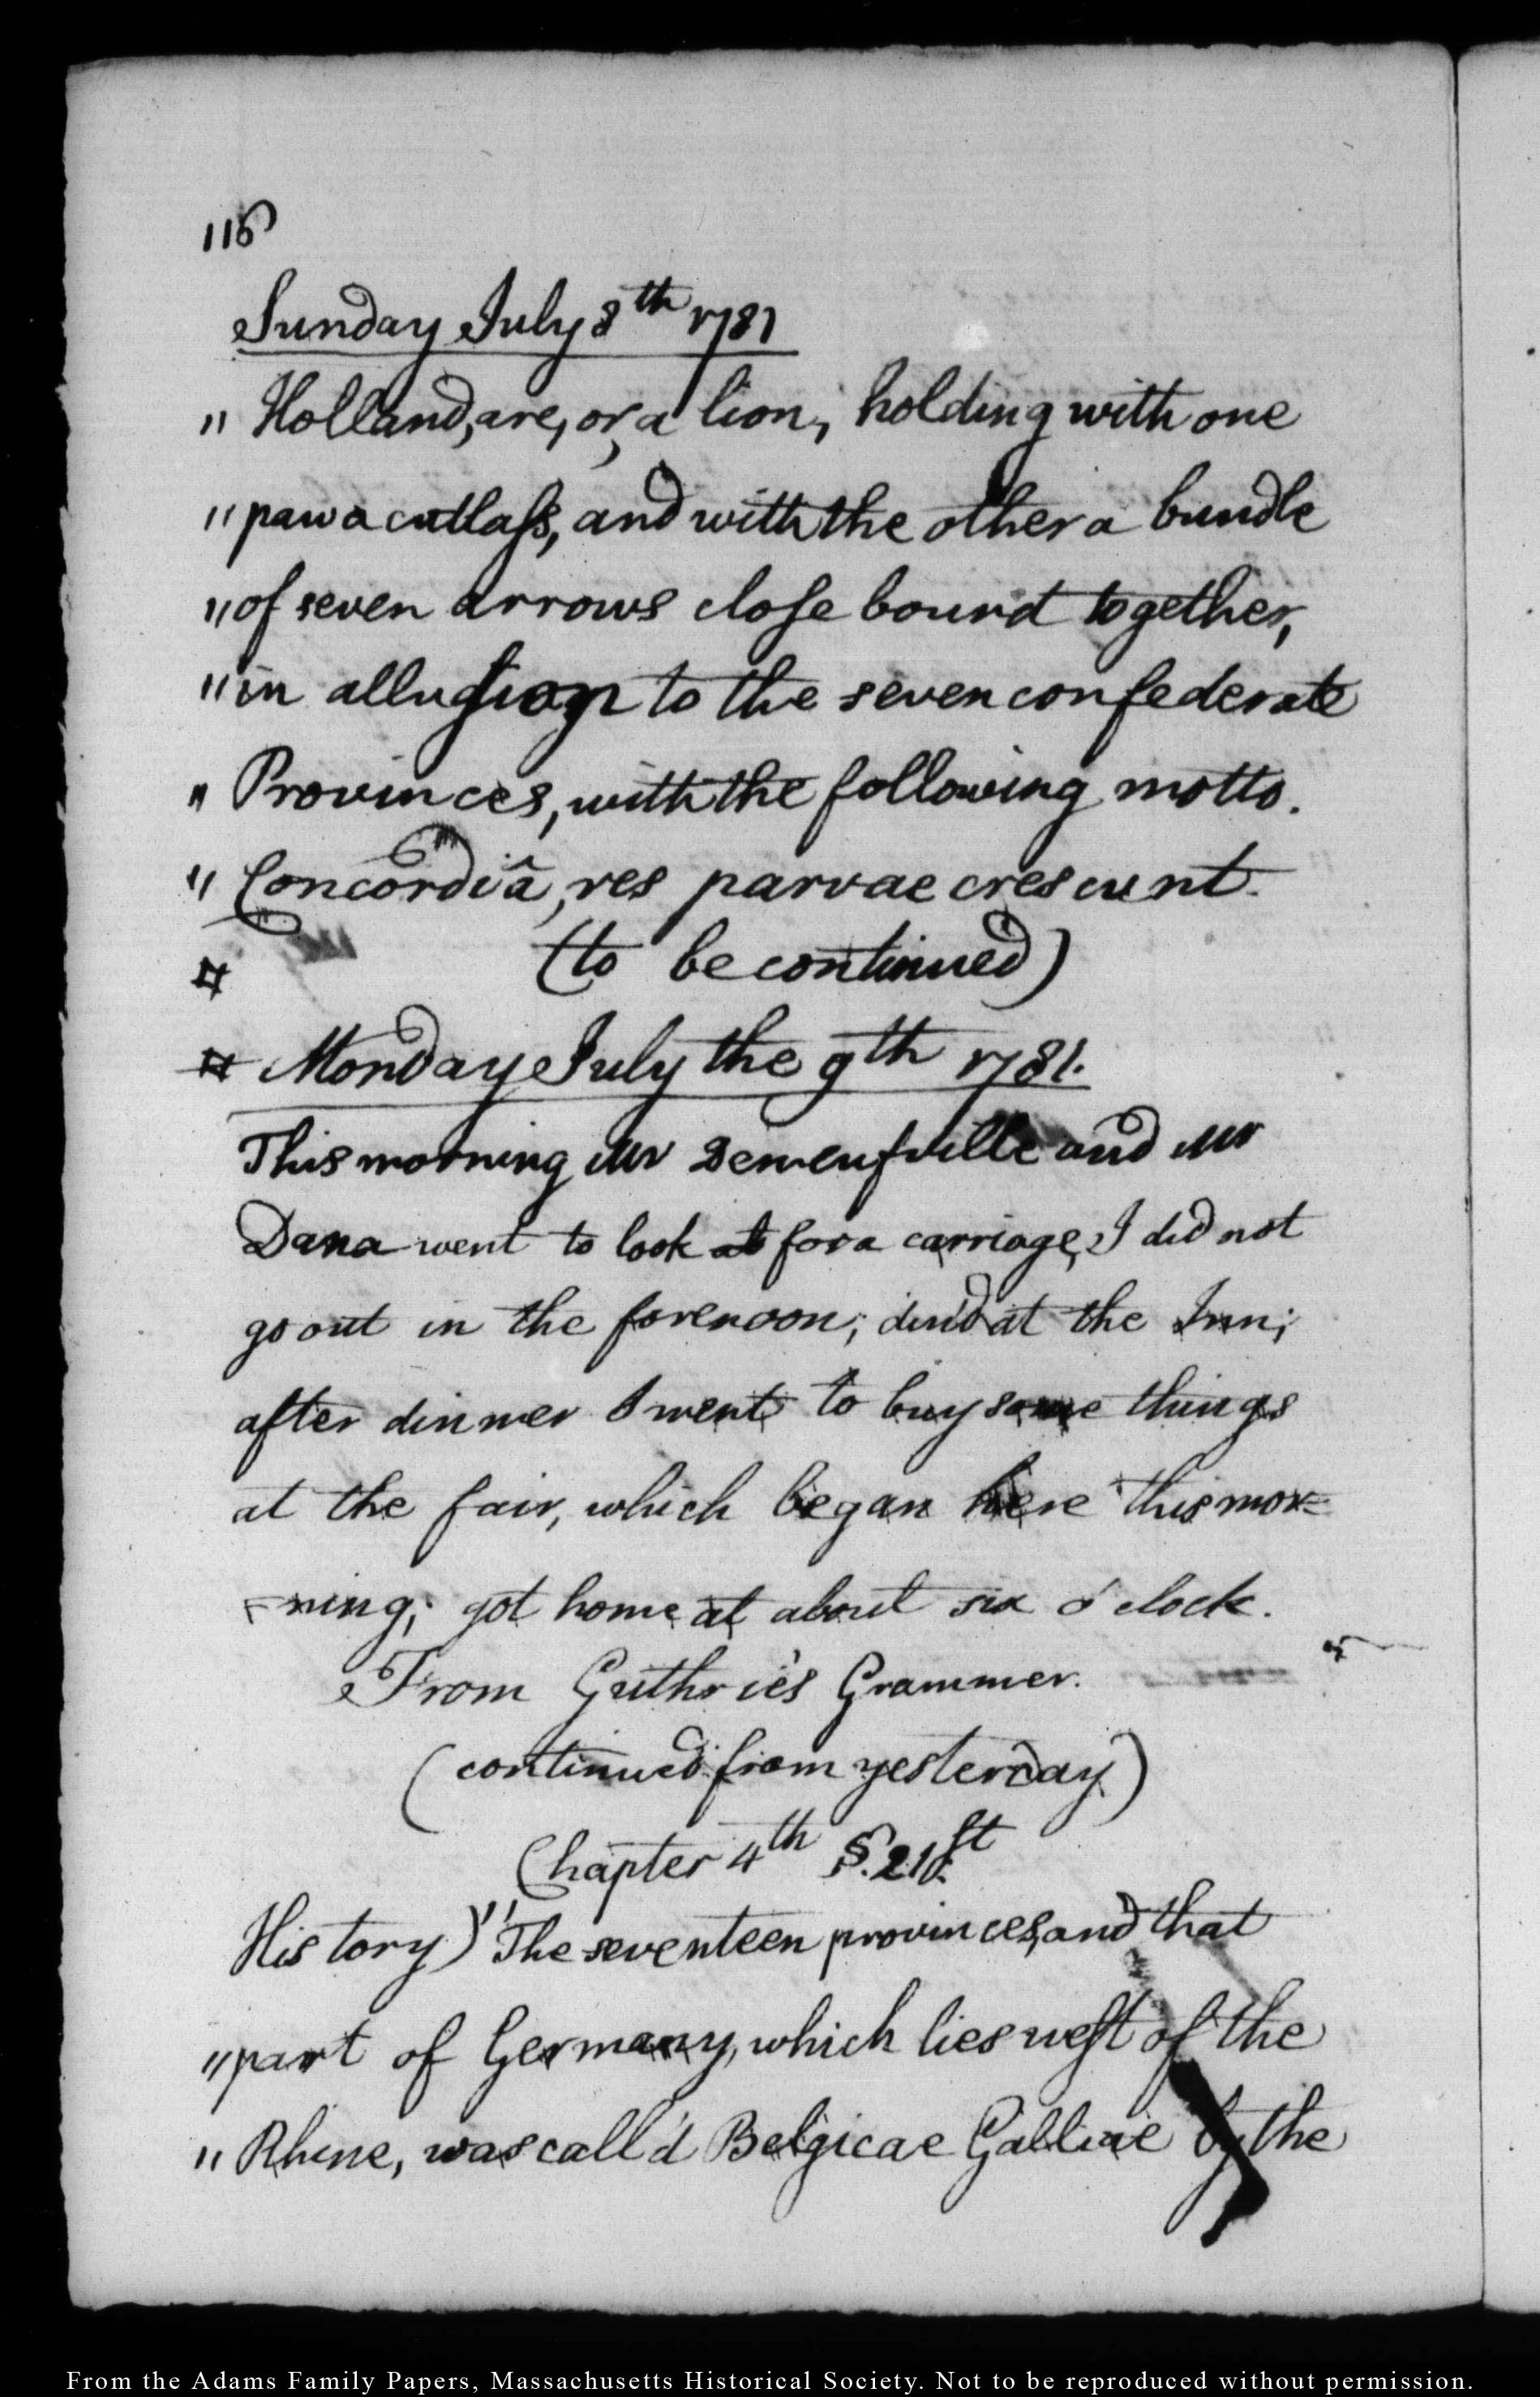 116
Sunday July 8th 1781
" Holland, are, or, a lion, holding with one
" paw a cutlass, and with the other a bundle
" of seven arrows close bound together,
" in allusion to the seven confederate
" Provinces, with the following motto.
" Concordiâ, res parvae crescunt.
(to be continued)
Monday July the 9th 1781.
This morning Mr Deneufville and Mr
Dana went to look at for a carriage, I did not
go out in the forenoon; din'd at the Inn;
after dinner I went to buy some things
at the fair, which began here this mor=
=ning; got home at about six o'clock.
From Guthrie's Grammer.
(continued from yesterday)
Chapter 4th §.21st
History) " The seventeen provinces, and that
" part of Germany, which lies west of the
" Rhine, was call'd Belgicae Galliae by the
From the Adams Family Papers, Massachusetts Historical Society. Not to be reproduced without permission.